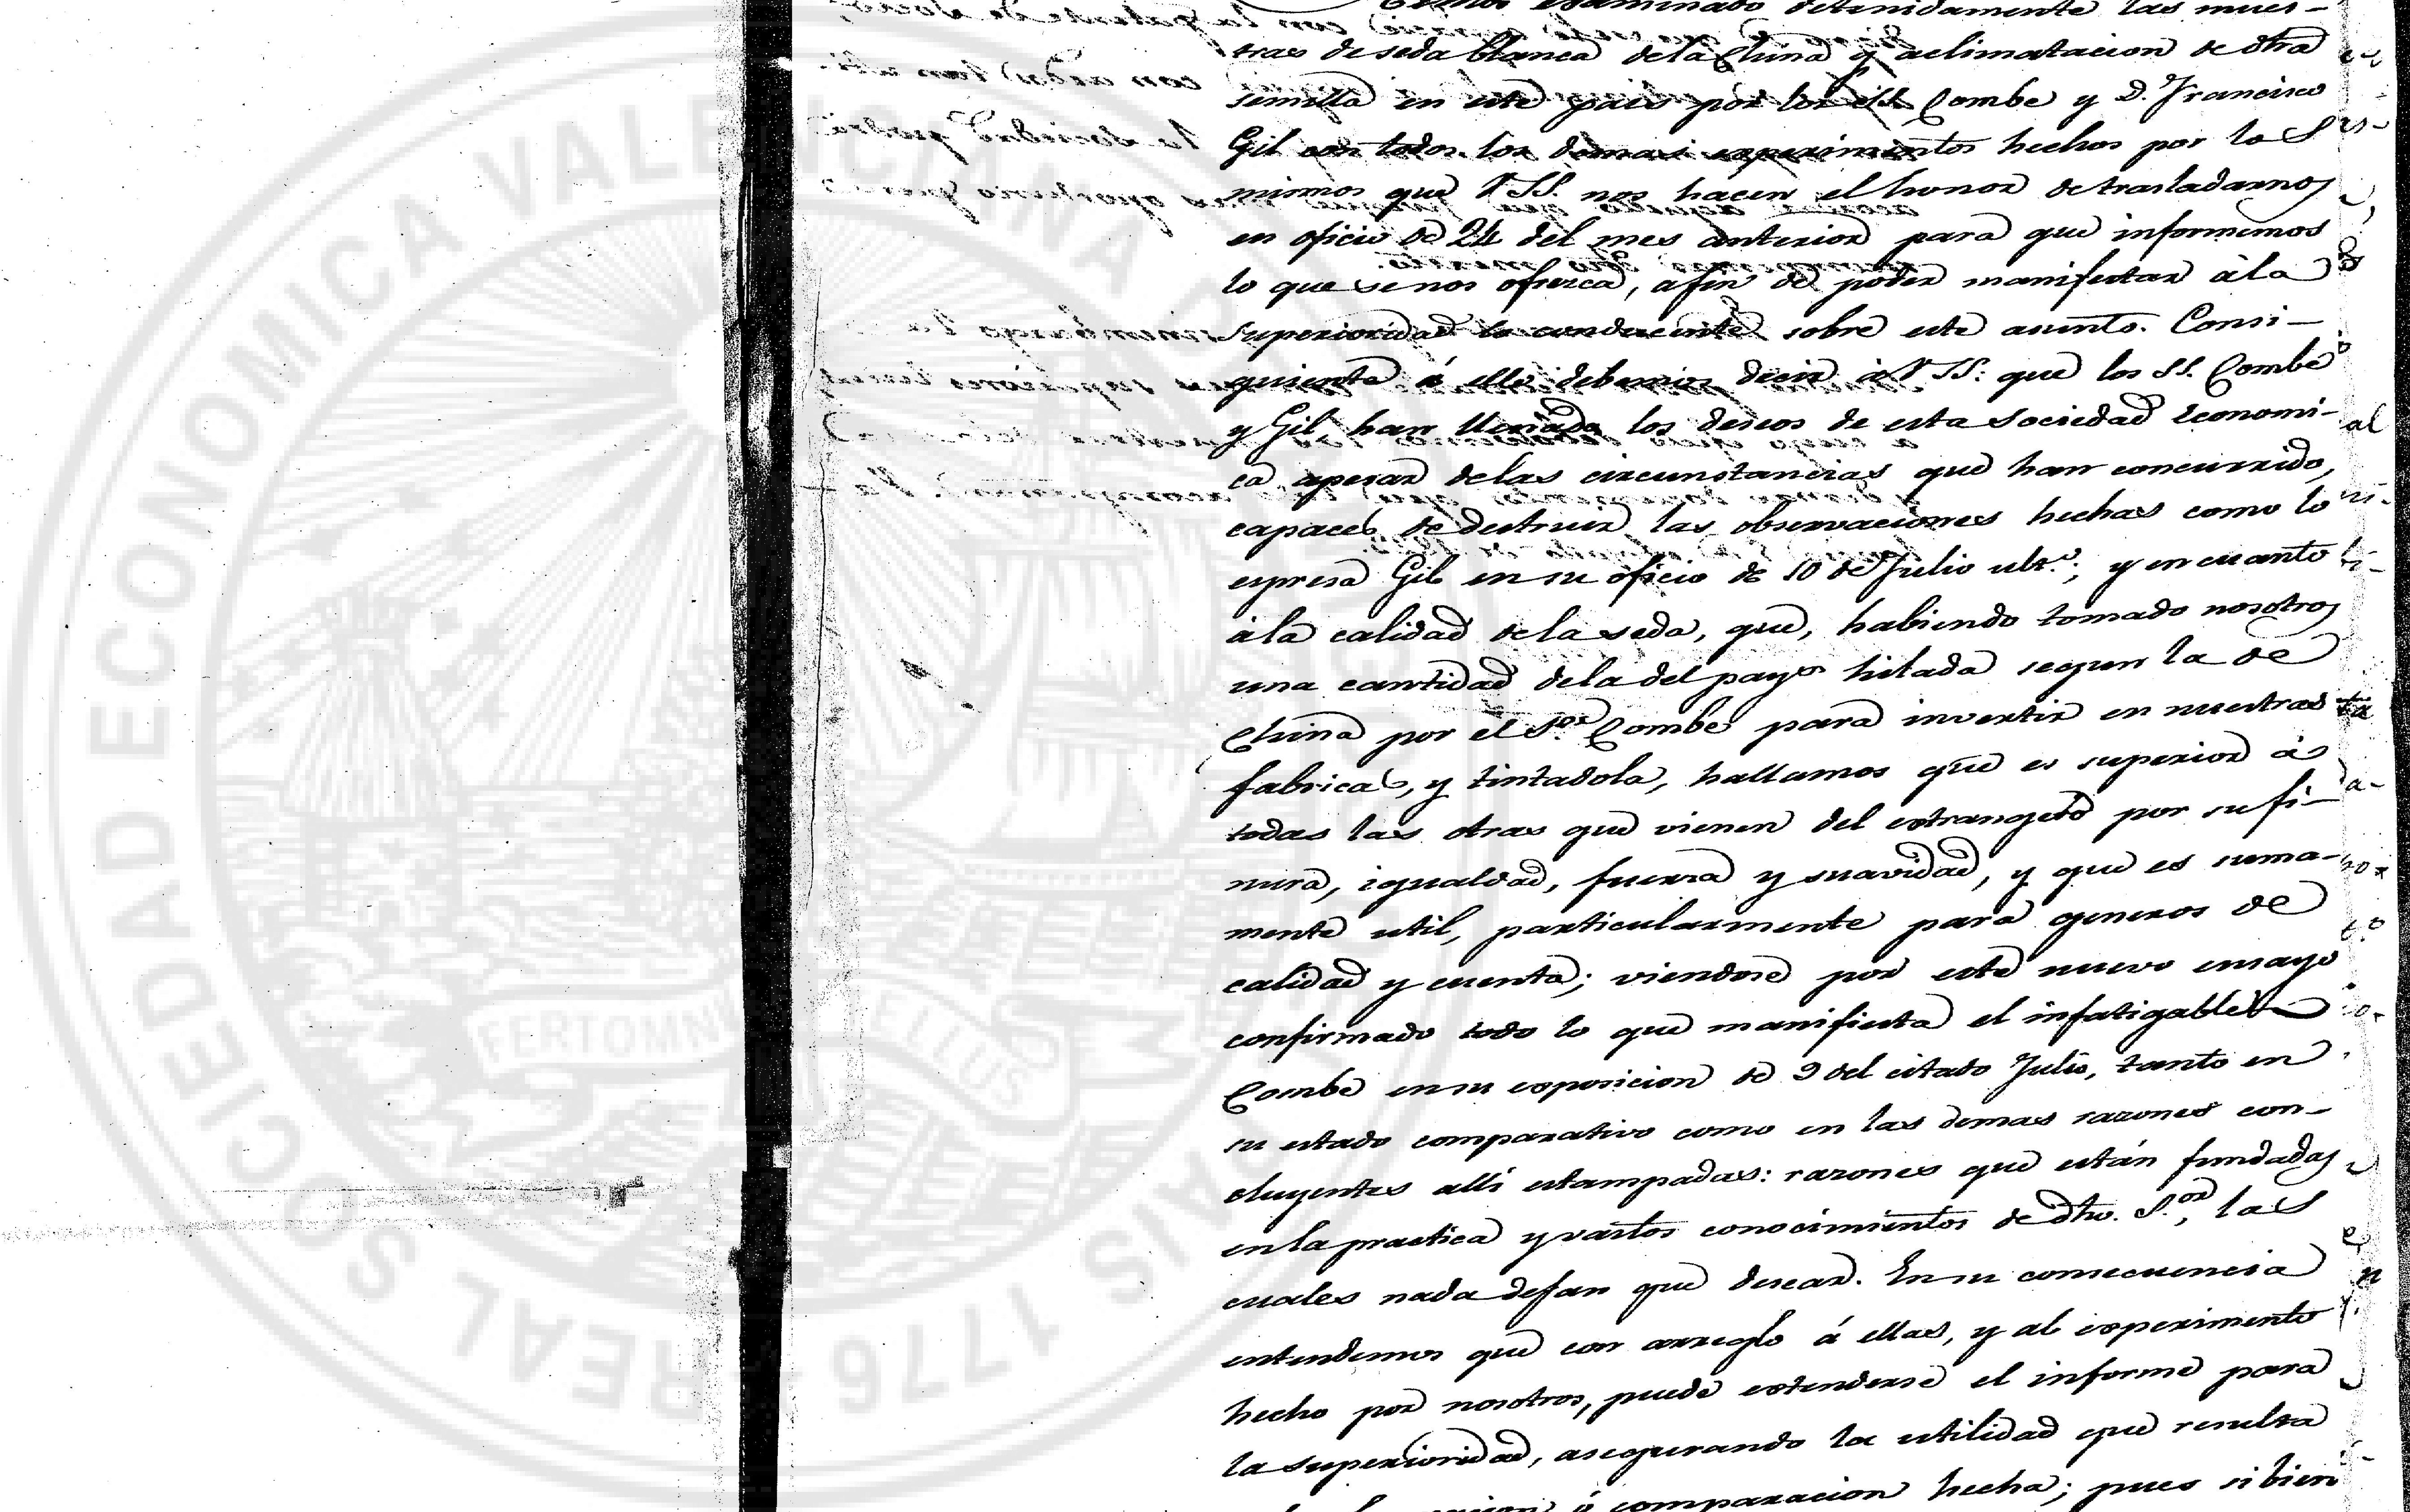 Hemos examinado detenidamente las mues-
tras de seda blanca de la China y aclimatacion de dha
semilla en este pais por los SS. Combe y D. Francisco
Gil con todos los demas experimentos hechos por los
mismos que V.SS. nos hacen el honor de trasladarnos
en oficio de 24 del mes anterior para que informemos
lo que se nos ofrezca, afin de poder manifestar à la
Superioridad lo conducente sobre este asunto. Consi-
guiente á ello debemos decir à V.SS: que los SS. Combe
y Gil han llenado los deseos de esta Sociedad Economi-
ca apesar delas circunstancias que han concurrido,
capaces de destruir las observaciones hechas como lo
espresa Gil en su oficio de 10 de Julio ult.º; y en cuanto
à la calidad de la seda, que, habiendo tomado nosotros
una cantidad dela del pays hilada segun la de
China por el S.or Combe para invertir en nuestras
fabricas, y tintadola, hallamos que es superior à
todas las otras que vienen del estrangero por su fi-
nura, igualdad, fuerza y suavidad, y que es suma-
mente util, particularmente para generos de
calidad y cuenta; viendose por este nuevo ensayo
confirmado todo lo que manifiesta el infatigable
Combe en su esposicion de 9 del citado Julio, tanto en
su estado comparativo como en las demas razones con-
cluyentes allí estampadas: razones que están fundadas
en la practica y vastos conocimientos de dho. S.or, las
cuales nada dejan que desear. En su consecuencia
entendemos que con arreglo á ellas, y al esperimento
hecho por nosotros, puede estenderse el informe para
la superioridad, asegurando la utilidad que resulta
ó comparacion hecha; pues si bien
REAL SOCIEDAD ECONOMICA VALENCIANA
1776